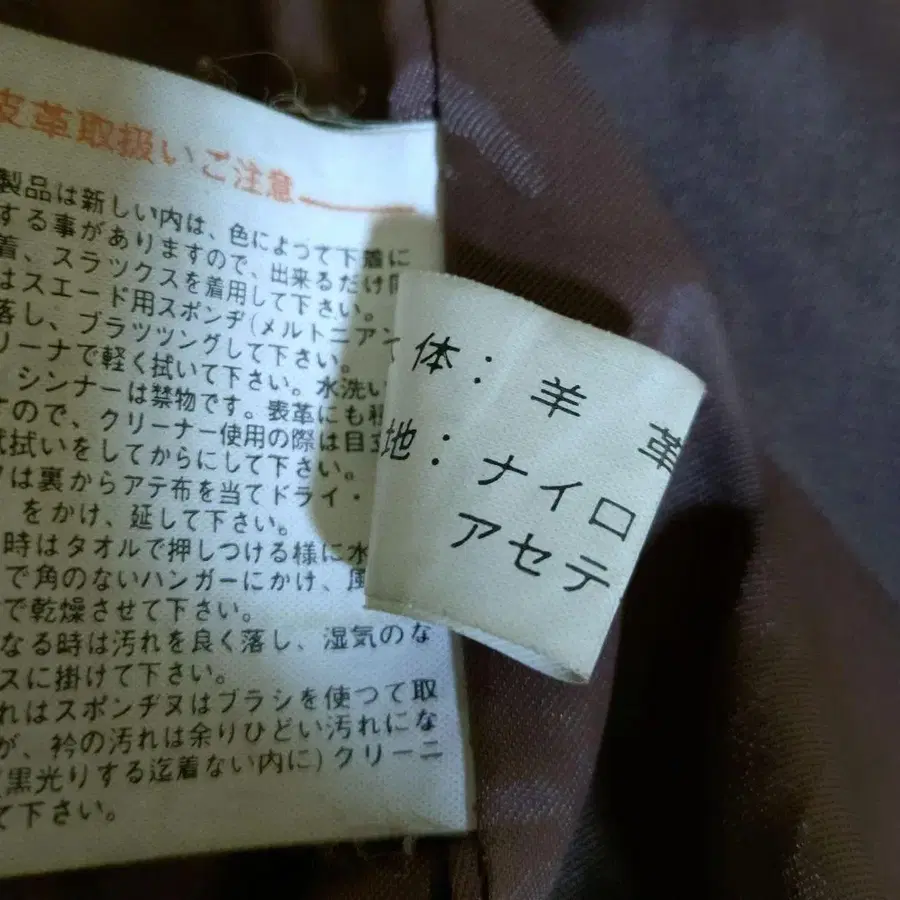 皮革取扱いご注意
製品は新しい内は、色によつて下着に
する事がありますので、出来るだけ
着、スラックスを着用して下さい。
はスエード用スポンヂ(メルトニアン
落し、ブラツツングして下さい。
リーナで軽く拭いて下さい。水洗い
シンナーは禁物です。表革にも
すので、クリーナー使用の際は目立
拭いをしてからにして下さい。
は裏からアテ布を当てドライ・
をかけ、延して下さい。
時はタオルで押しつける様に水
で角のないハンガーにかけ、風
で乾燥させて下さい。
なる時は汚れを良く落し、湿気のな
スに掛けて下さい。
れはスポンヂヌはブラシを使つて取
が、衿の汚れは余りひどい汚れにな
(黒光りする迄着ない内に)クリーニ
て下さい。
体: 羊 革
地: ナイロ
アセテ